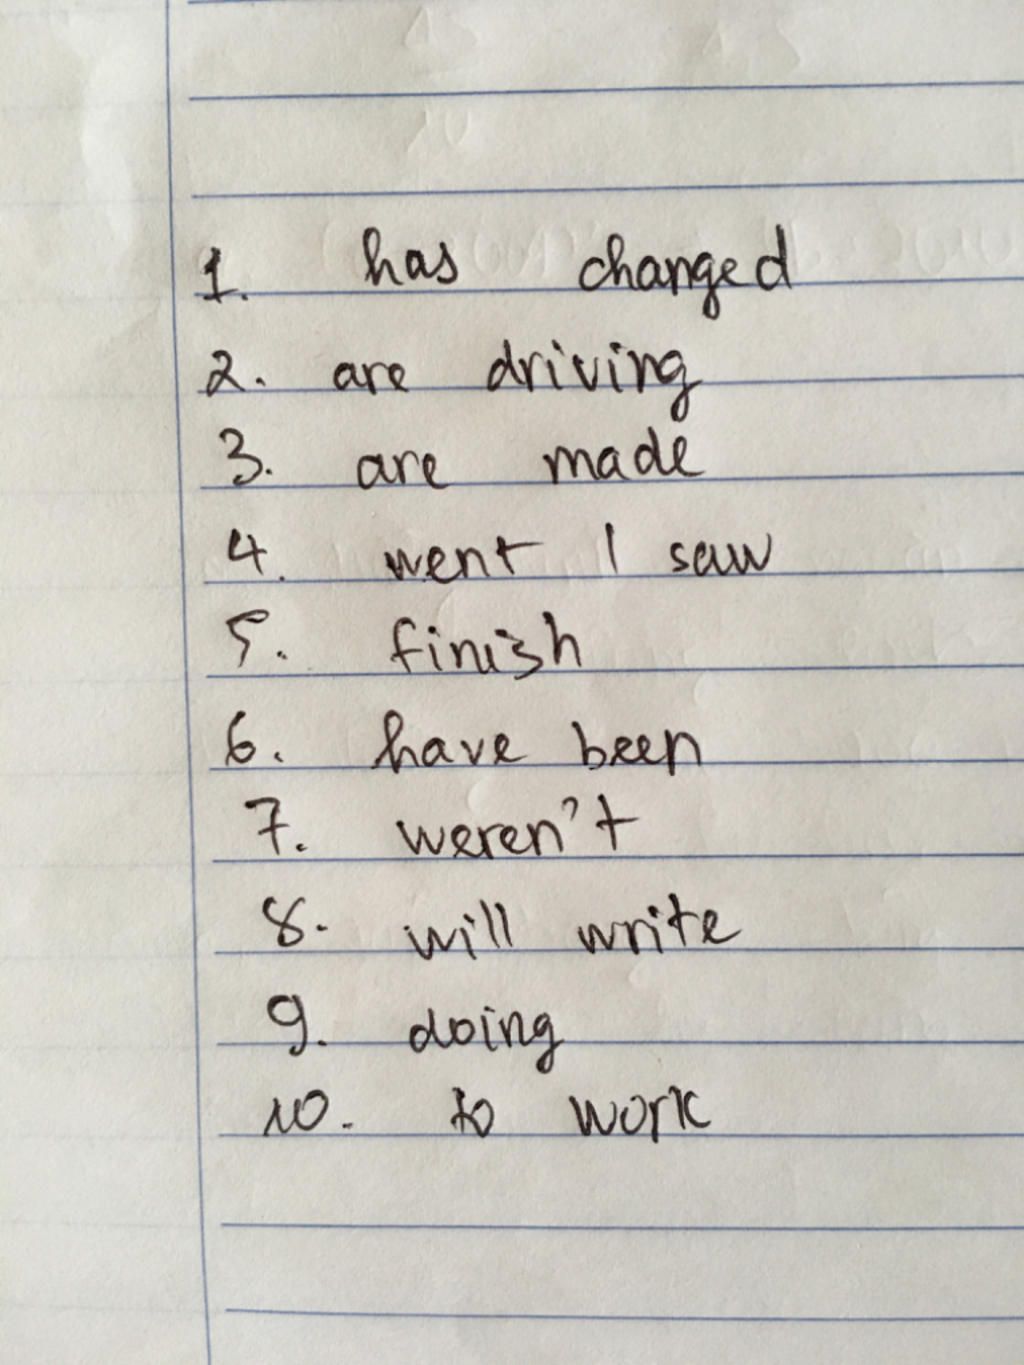 1. has changed
2. are driving
3. are made
4. went / saw
5. finish
6. have been
7. weren't
8. will write
9. doing
10. to work